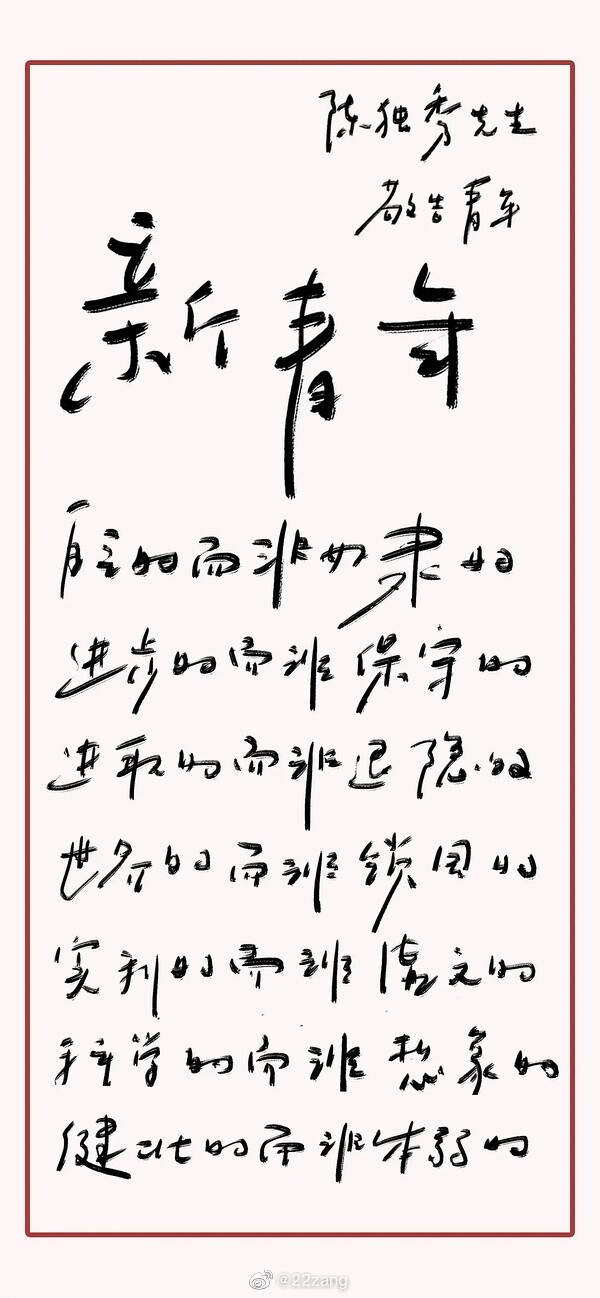 陈独秀先生
敬告青年
新青年
自主的而非奴隶的
进步的而非保守的
进取的而非退隐的
世界的而非锁国的
实利的而非虚文的
科学的而非想象的
健壮的而非体弱的
@22zang